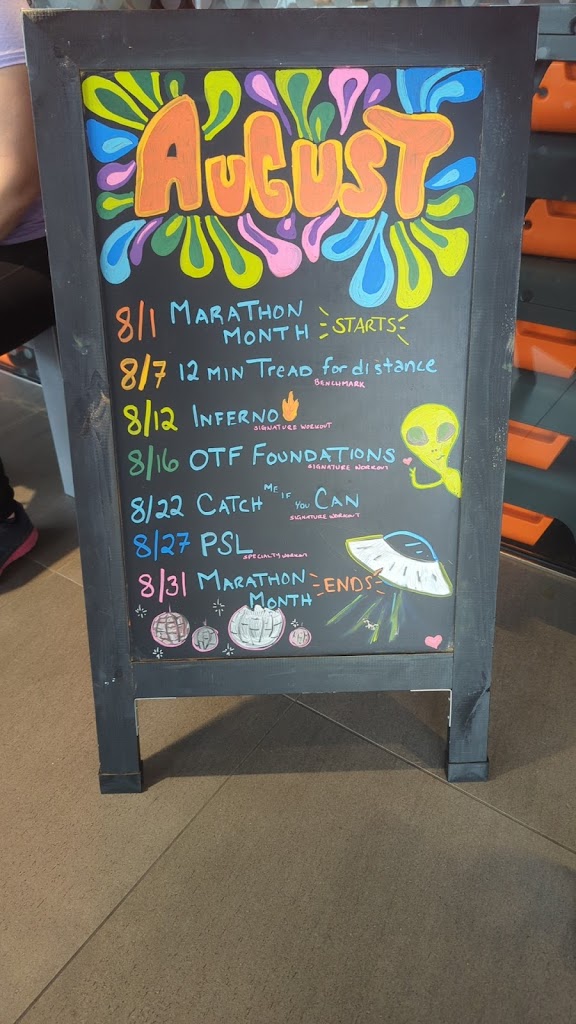 AUGUST
8/1 MARATHON
MONTH STARTS
8/7 12 MIN TREAD for distance
BENCHMARK
8/12 INFERNO
SIGNATURE WORKOUT
8/16 OTF FOUNDATIONS
SIGNATURE WORKOUT
8/22 CATCH ME IF YOU CAN
SIGNATURE WORKOUT
8/27 PSL
SPECIALTY WORKOUT
8/31 MARATHON
MONTH ENDS